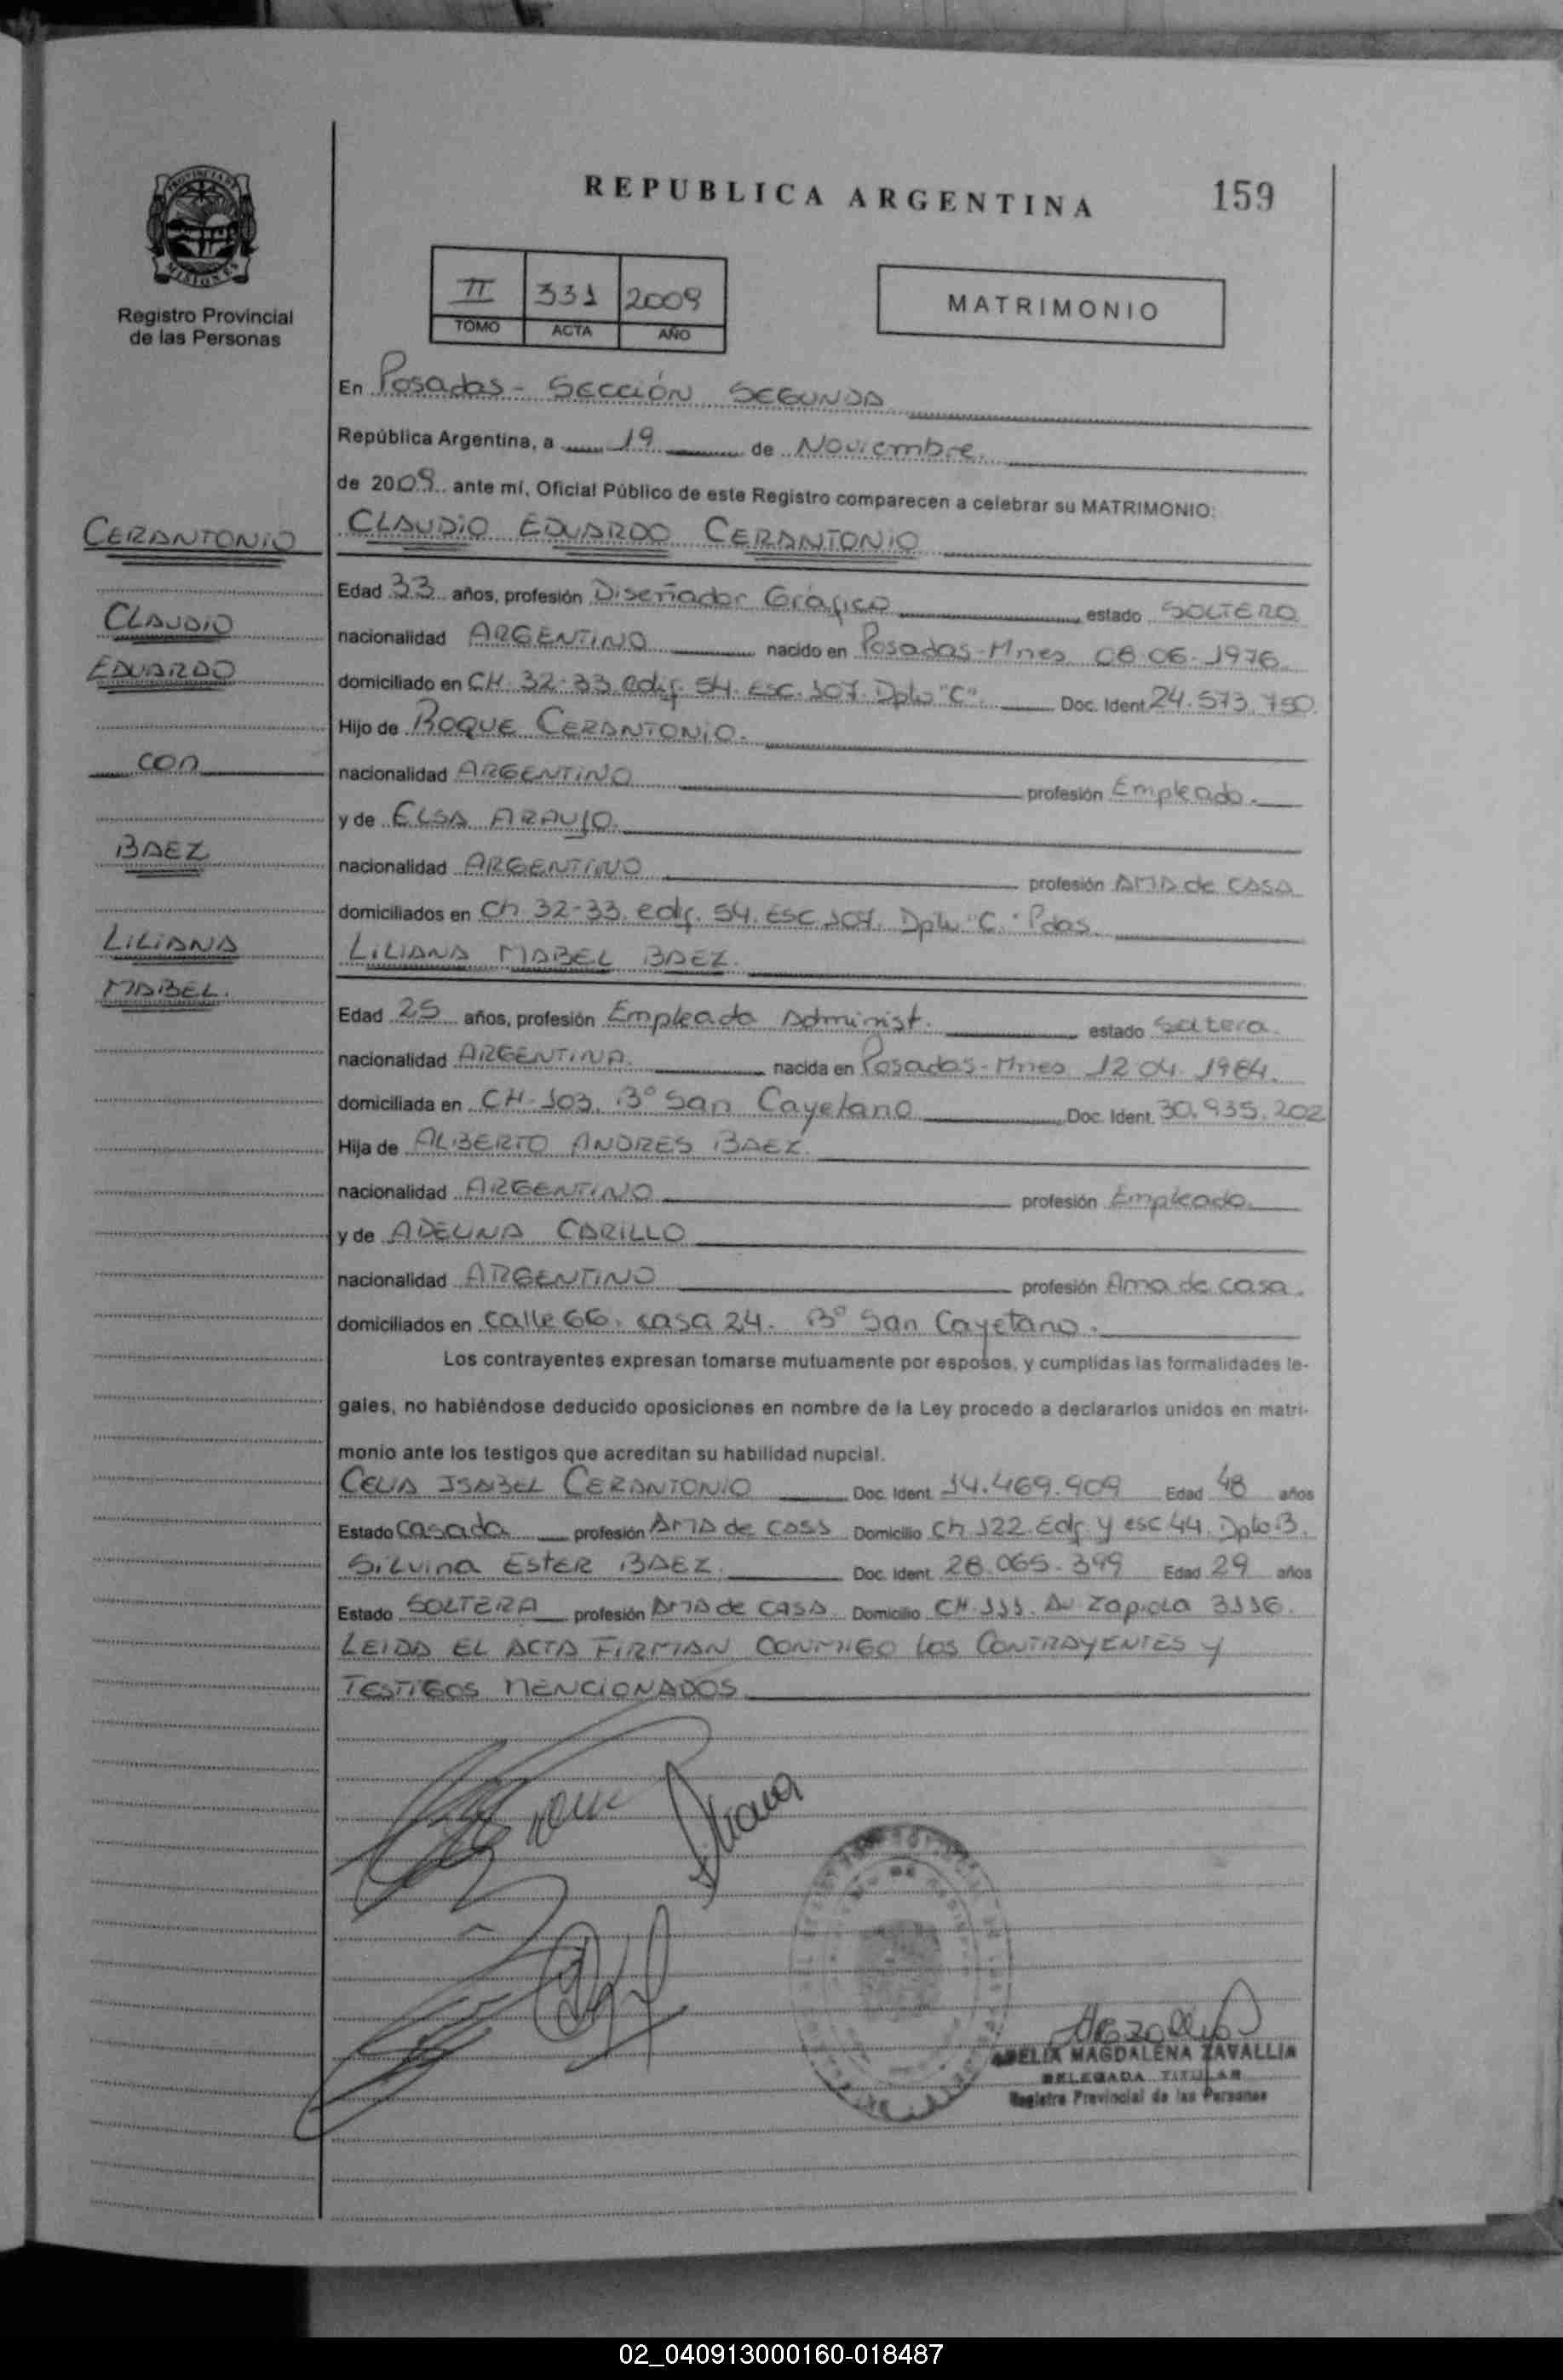 REPUBLICA ARGENTINA
159
PROVINCIA DE
MISIONES
Registro Provincial
de las Personas
II 331 2009
TOMO ACTA AÑO
MATRIMONIO
En Posadas - Sección SEGUNDA
República Argentina, a 19 de Noviembre.
de 2009 ante mí, Oficial Público de este Registro comparecen a celebrar su MATRIMONIO:
CERANTONIO
CLAUDIO EDUARDO CERANTONIO
Edad 33 años, profesión Diseñador Gráfico estado SOLTERO
CLAUDIO
nacionalidad ARGENTINO nacido en Posadas-Mnes 08.06.1976
EDUARDO
domiciliado en CH. 32-33 edif. 54. Esc. 107. Dpto "C". Doc. Ident. 24.573.750.
Hijo de ROQUE CERANTONIO.
con
nacionalidad ARGENTINO profesión Empleado.
y de ELSA ARAUJO.
BAEZ
nacionalidad ARGENTINO profesión AMA de CASA
domiciliados en Ch 32-33. edif. 54. Esc 107. Dpto "C." Pdas.
LILIANA
LILIANA MABEL BAEZ.
MABEL.
Edad 25 años, profesión Empleada Administ. estado Soltera.
nacionalidad ARGENTINA. nacida en Posadas-Mnes 12.04.1984.
domiciliada en CH-103. B° San Cayetano Doc. Ident. 30.935.202
Hija de ALBERTO ANDRES BAEZ.
nacionalidad ARGENTINO profesión Empleado.
y de ADELINA CARILLO
nacionalidad ARGENTINO profesión Ama de casa.
domiciliados en calle 66. casa 24. B° San Cayetano.
Los contrayentes expresan tomarse mutuamente por esposos, y cumplidas las formalidades le-
gales, no habiéndose deducido oposiciones en nombre de la Ley procedo a declararlos unidos en matri-
monio ante los testigos que acreditan su habilidad nupcial.
CELIA ISABEL CERANTONIO Doc. Ident. 14.469.909 Edad 48 años
Estado Casada profesión AMA de CASA Domicilio Ch 122. Edif. y esc 44. Dpto B.
Silvina ESTER BAEZ. Doc. Ident. 28.065.399 Edad 29 años
Estado SOLTERA profesión AMA de CASA Domicilio CH. 111. Av Zapiola 3116.
LEIDA EL ACTA FIRMAN CONMIGO LOS CONTRAYENTES y
TESTIGOS MENCIONADOS
Liliana
AMELIA MAGDALENA ZAVALLIA
DELEGADA TITULAR
Registro Provincial de las Personas
02_040913000160-018487